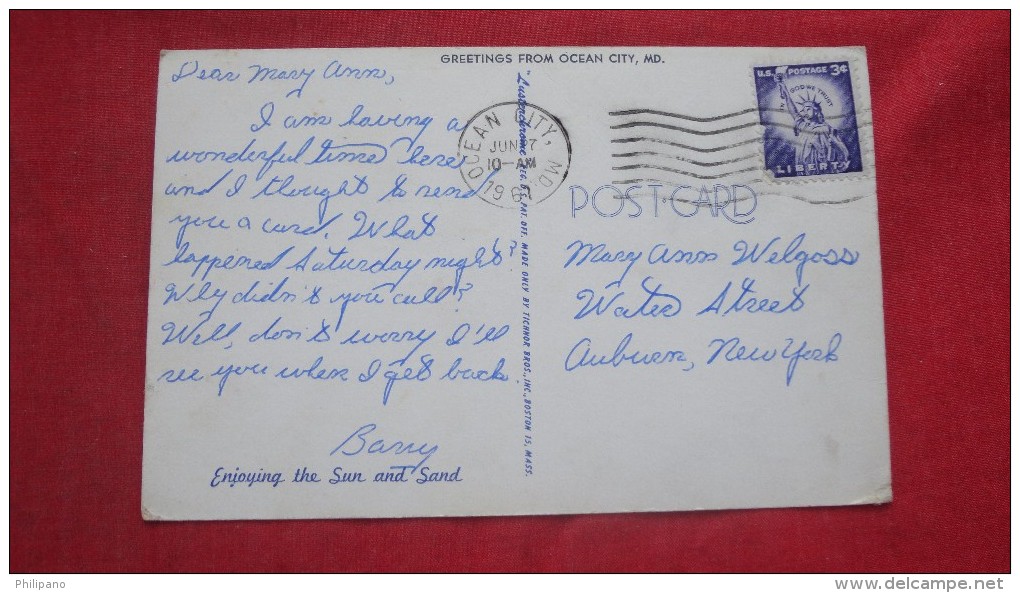 GREETINGS FROM OCEAN CITY, MD.
Dear Mary Ann,
I am having a
wonderful time here
and I thought to send
you a card. What
happened Saturday night?
Why didn't you call?
Well, don't worry I'll
see you when I get back.
Barry
Enjoying the Sun and Sand
"Lusterchrome" REG. U.S. PAT. OFF. MADE ONLY BY TICHNOR BROS., INC., BOSTON 15, MASS.
OCEAN CITY, MD.
JUN 7
10-AM
196
U.S. POSTAGE 3¢
IN GOD WE TRUST
LIBERTY
POST CARD
Mary Ann Welgoss
Water Street
Auburn, New York
Philipano
www.delcampe.net